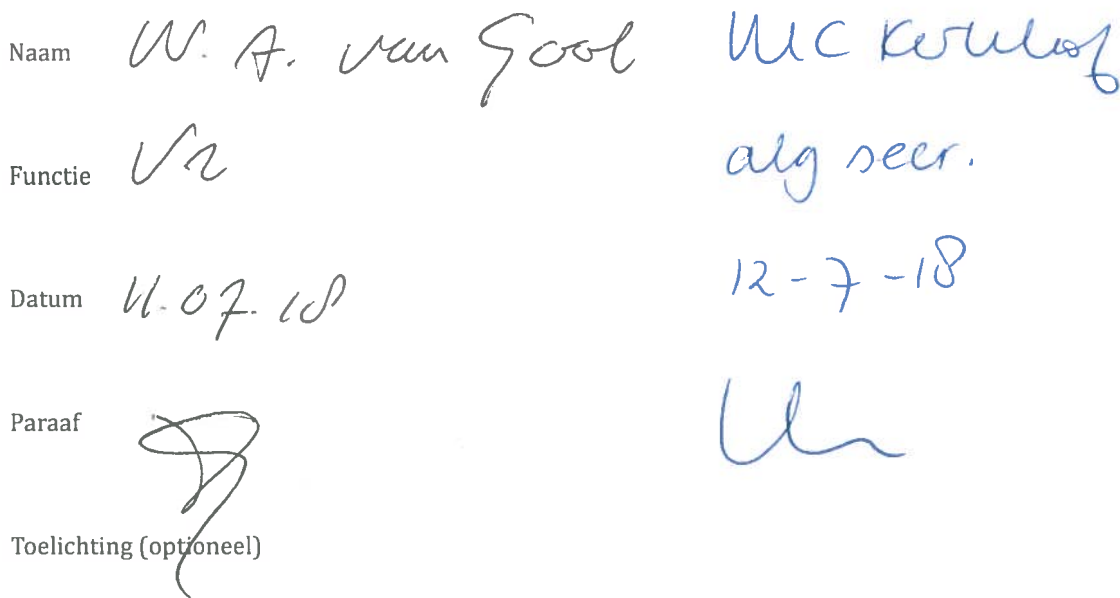 Naam W. A. van Gool MC Kerkhof
Functie Vz alg secr.
Datum 11.07.18 12-7-18
Paraaf
Toelichting (optioneel)